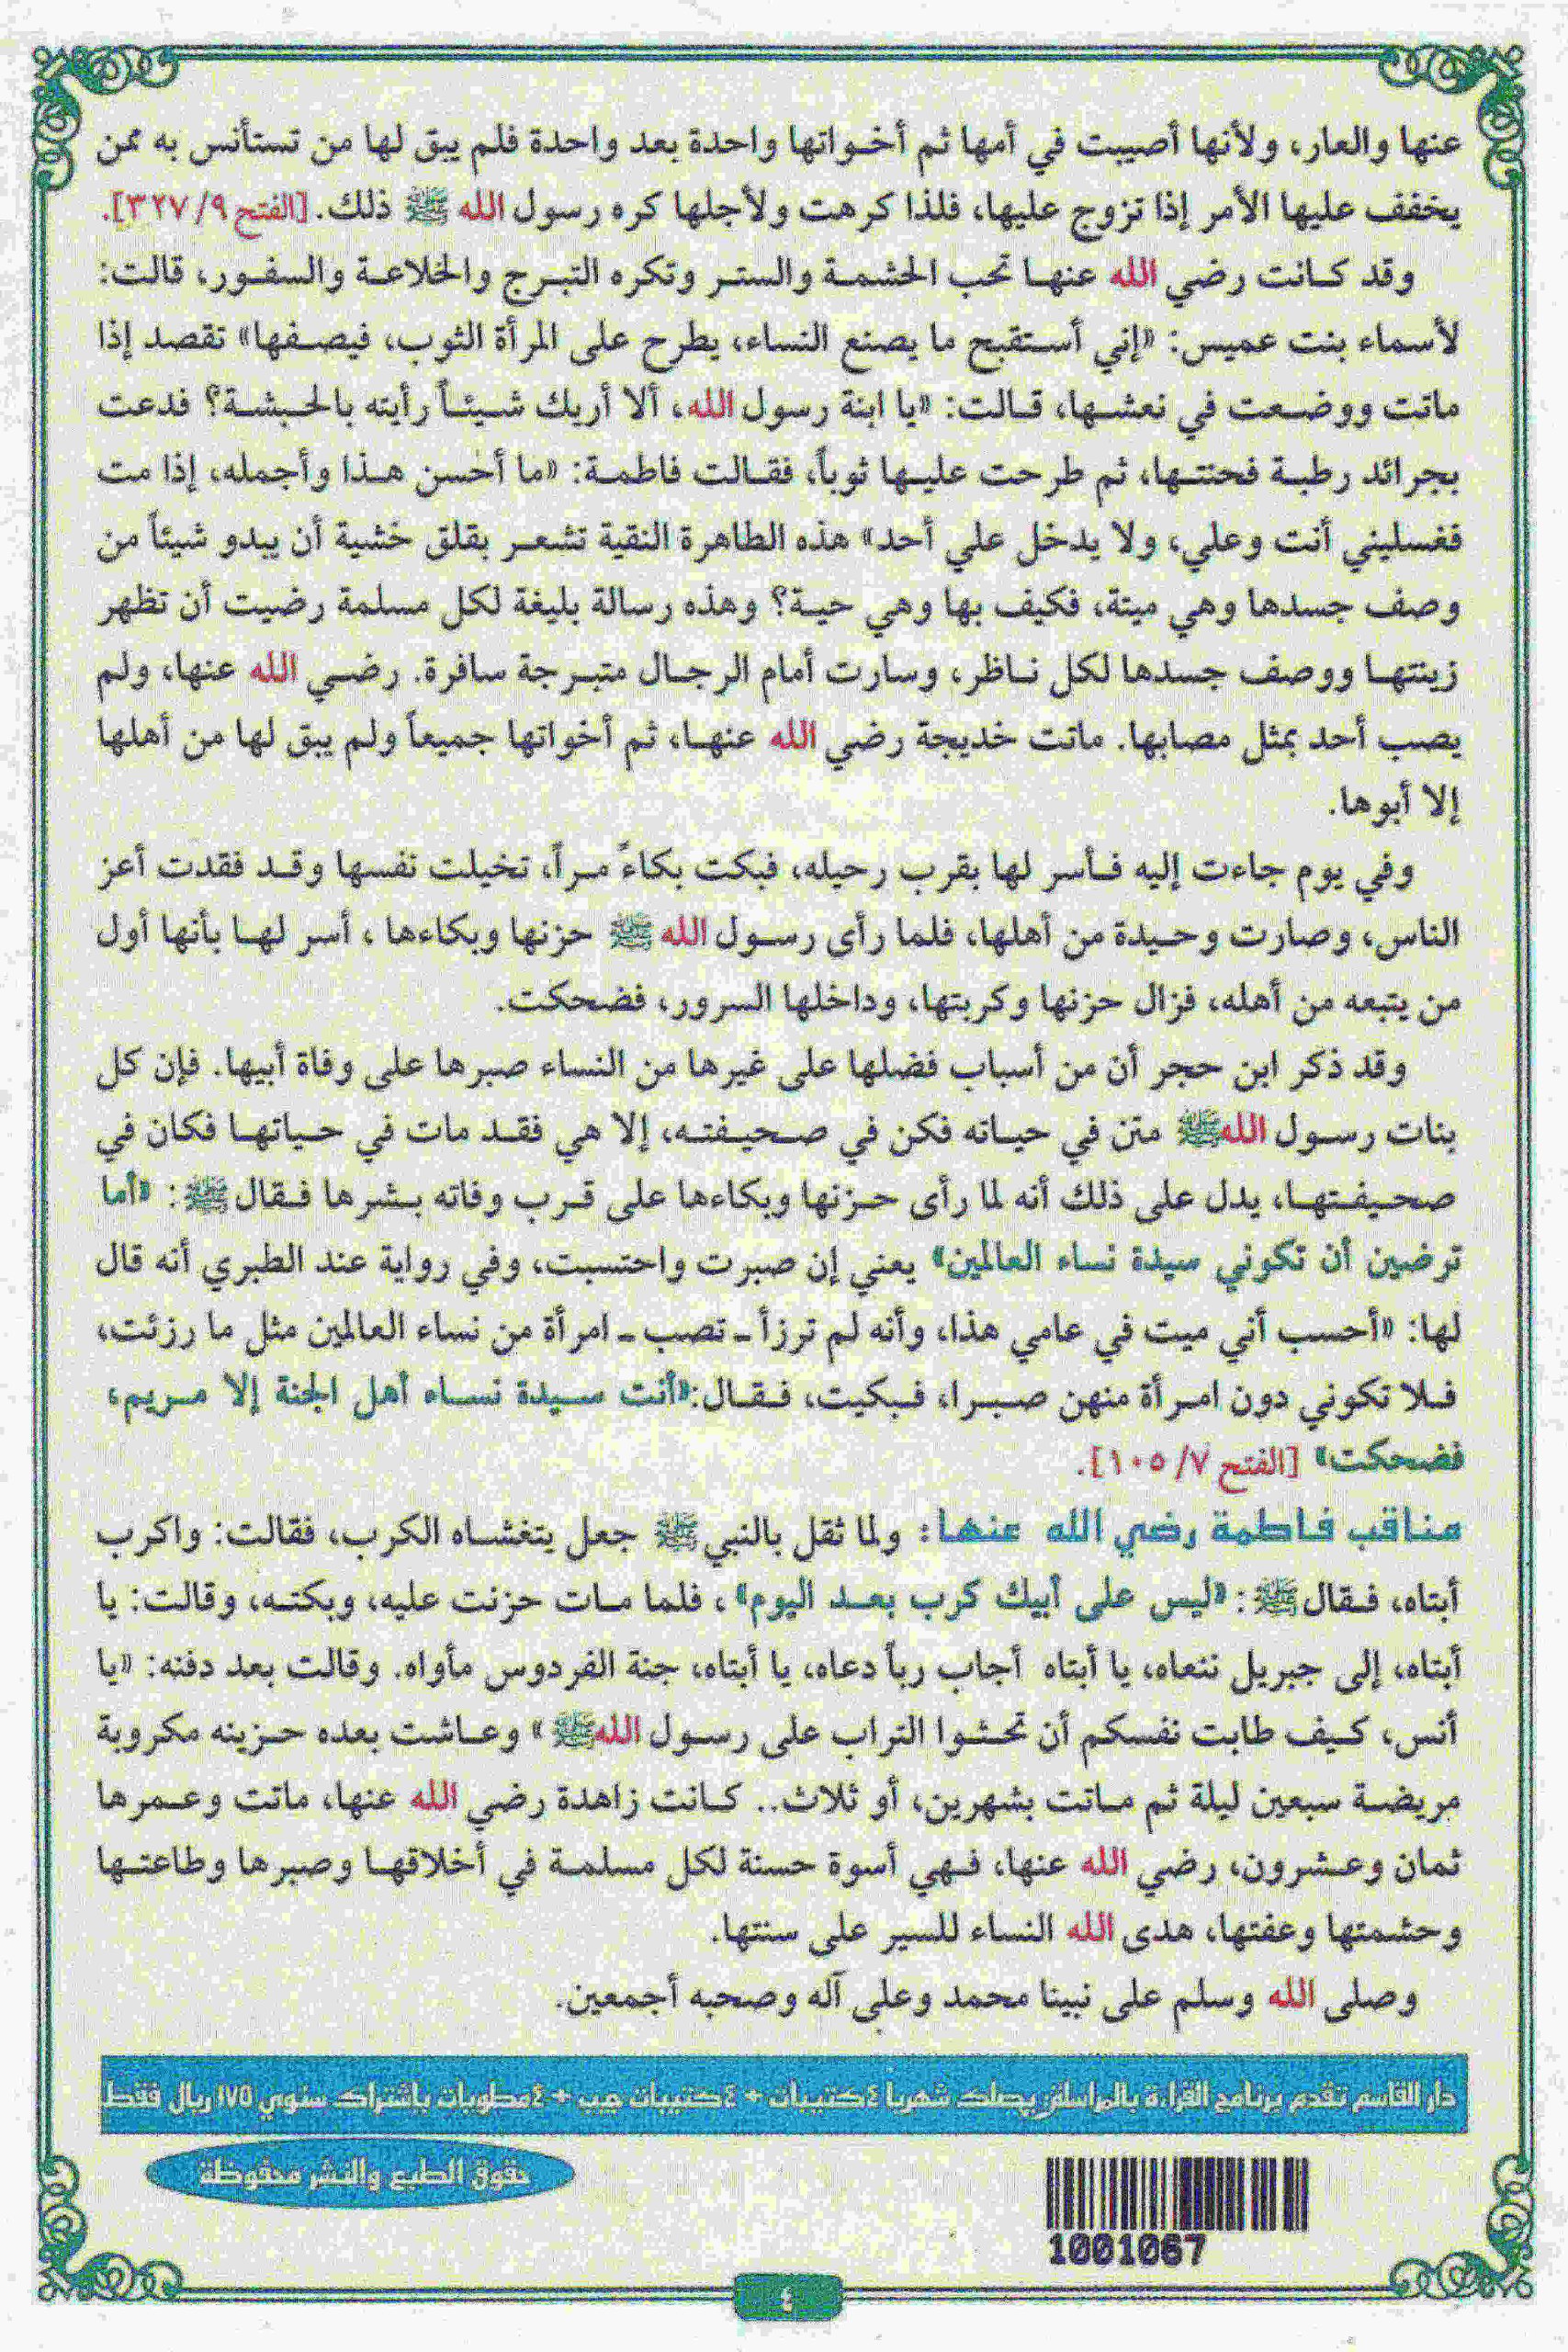 عنها والعار، ولأنها أصيبت في أمها ثم أخواتها واحدة بعد واحدة فلم يبق لها من تستأنس به ممن
يخفف عليها الأمر إذا تزوج عليها، فلذا كرهت ولأجلها كره رسول الله ﷺ ذلك. [الفتح ٩/ ٣٢٧].
وقد كانت رضي الله عنها تحب الحشمة والستر وتكره التبرج والخلاعة والسفور، قالت:
لأسماء بنت عميس: «إني أستقبح ما يصنع النساء، يطرح على المرأة الثوب، فيصفها» تقصد إذا
ماتت ووضعت في نعشها، قالت: «يا ابنة رسول الله، ألا أريك شيئاً رأيته بالحبشة؟ فدعت
بجرائد رطبة فحنتها، ثم طرحت عليها ثوباً، فقالت فاطمة: «ما أحسن هذا وأجمله، إذا مت
فغسليني أنت وعلي، ولا يدخل علي أحد» هذه الطاهرة النقية تشعر بقلق خشية أن يبدو شيئاً من
وصف جسدها وهي ميتة، فكيف بها وهي حية؟ وهذه رسالة بليغة لكل مسلمة رضيت أن تظهر
زينتها ووصف جسدها لكل ناظر، وسارت أمام الرجال متبرجة سافرة. رضي الله عنها، ولم
يصب أحد بمثل مصابها. ماتت خديجة رضي الله عنها، ثم أخواتها جميعاً ولم يبق لها من أهلها
إلا أبوها.
وفي يوم جاءت إليه فأسر لها بقرب رحيله، فبكت بكاءً مراً، تخيلت نفسها وقد فقدت أعز
الناس، وصارت وحيدة من أهلها، فلما رأى رسول الله ﷺ حزنها وبكاءها ، أسر لها بأنها أول
من يتبعه من أهله، فزال حزنها وكربتها، وداخلها السرور، فضحكت.
وقد ذكر ابن حجر أن من أسباب فضلها على غيرها من النساء صبرها على وفاة أبيها. فإن كل
بنات رسول الله ﷺ متن في حياته فكن في صحيفته، إلا هي فقد مات في حياتها فكان في
صحيفتها، يدل على ذلك أنه لما رأى حزنها وبكاءها على قرب وفاته بشرها فقال ﷺ: «أما
ترضين أن تكوني سيدة نساء العالمين» يعني إن صبرت واحتسبت، وفي رواية عند الطبري أنه قال
لها: «أحسب أني ميت في عامي هذا، وأنه لم ترزأ ـ تصب ـ امرأة من نساء العالمين مثل ما رزئت،
فلا تكوني دون امرأة منهن صبرا، فبكيت، فقال: «أنت سيدة نساء أهل الجنة إلا مريم،
فضحكت» [الفتح ٧/ ١٠٥].
مناقب فاطمة رضي الله عنها: ولما ثقل بالنبي ﷺ جعل يتغشاه الكرب، فقالت: واكرب
أبتاه، فقال ﷺ: «ليس على أبيك كرب بعد اليوم» ، فلما مات حزنت عليه، وبكته، وقالت: يا
أبتاه، إلى جبريل ننعاه، يا أبتاه أجاب رباً دعاه، يا أبتاه، جنة الفردوس مأواه. وقالت بعد دفنه: «يا
أنس، كيف طابت نفسكم أن تحثوا التراب على رسول الله ﷺ » وعاشت بعده حزينه مكروبة
مريضة سبعين ليلة ثم ماتت بشهرين، أو ثلاث.. كانت زاهدة رضي الله عنها، ماتت وعمرها
ثمان وعشرون، رضي الله عنها، فهي أسوة حسنة لكل مسلمة في أخلاقها وصبرها وطاعتها
وحشمتها وعفتها، هدى الله النساء للسير على سنتها.
وصلى الله وسلم على نبينا محمد وعلى آله وصحبه أجمعين.
دار القاسم تقدم برنامج القراءة بالمراسلة، يصلك شهرياً ٤ كتيبات + ٤ كتيبات جيب + ٤ مطويات باشتراك سنوي ١٧٥ ريال فقط
حقوق الطبع والنشر محفوظة
1001067
٤